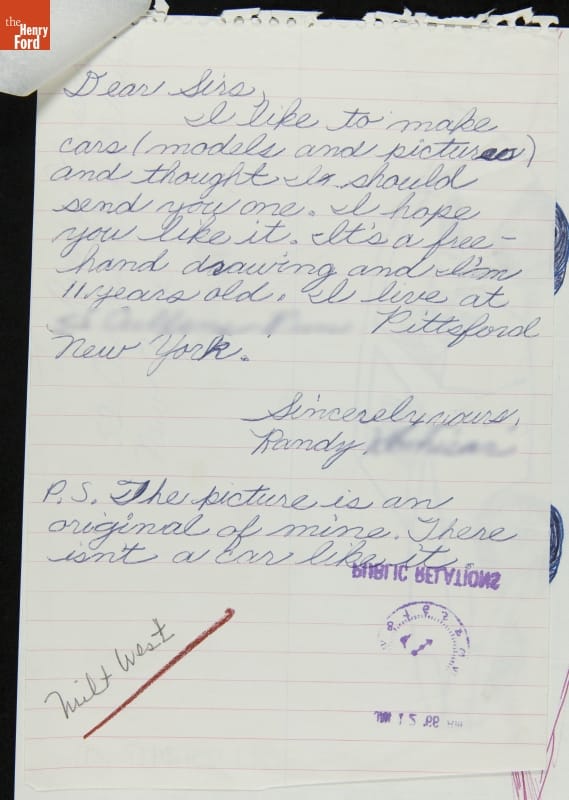 the
Henry
Ford
Dear Sirs,
I like to make
cars (models and pictures)
and thought I should
send you one. I hope
you like it. It's a free-
hand drawing and I'm
11 years old. I live at
Pittsford
New York.
Sincerely yours,
Randy
P.S. The picture is an
original of mine. There
isnt a car like it.
PUBLIC RELATIONS
Milt West